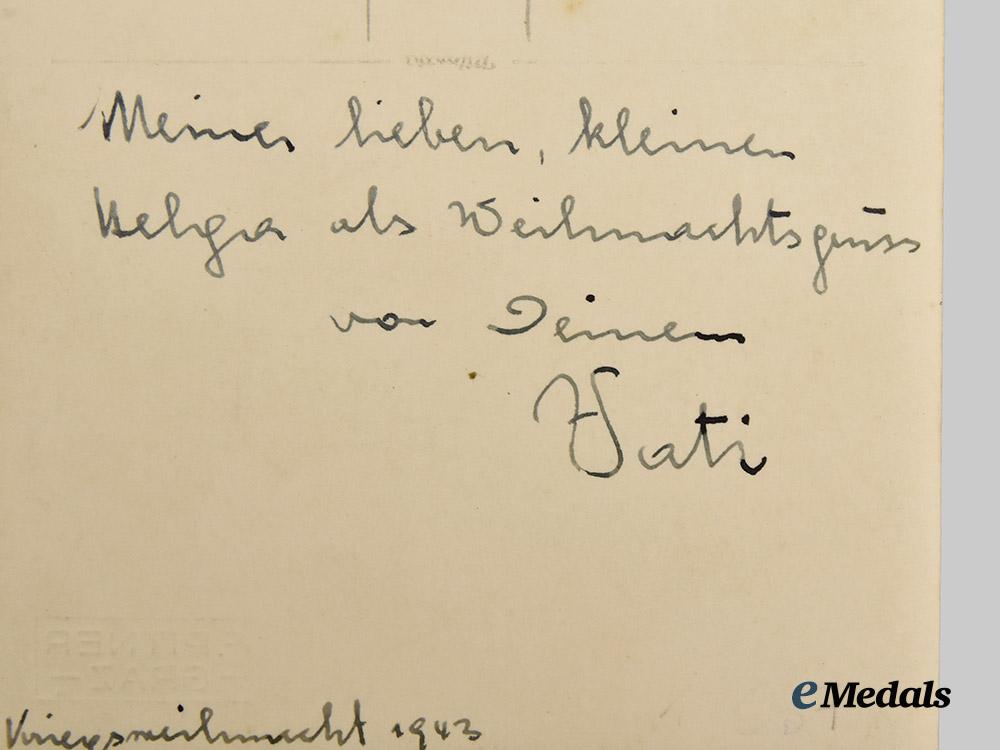 Meiner lieben, kleinen
Helga als Weihnachtsgruss
von Deinem
Vati
PITNER
GRAZ
Kriegsweihnacht 1943
eMedals